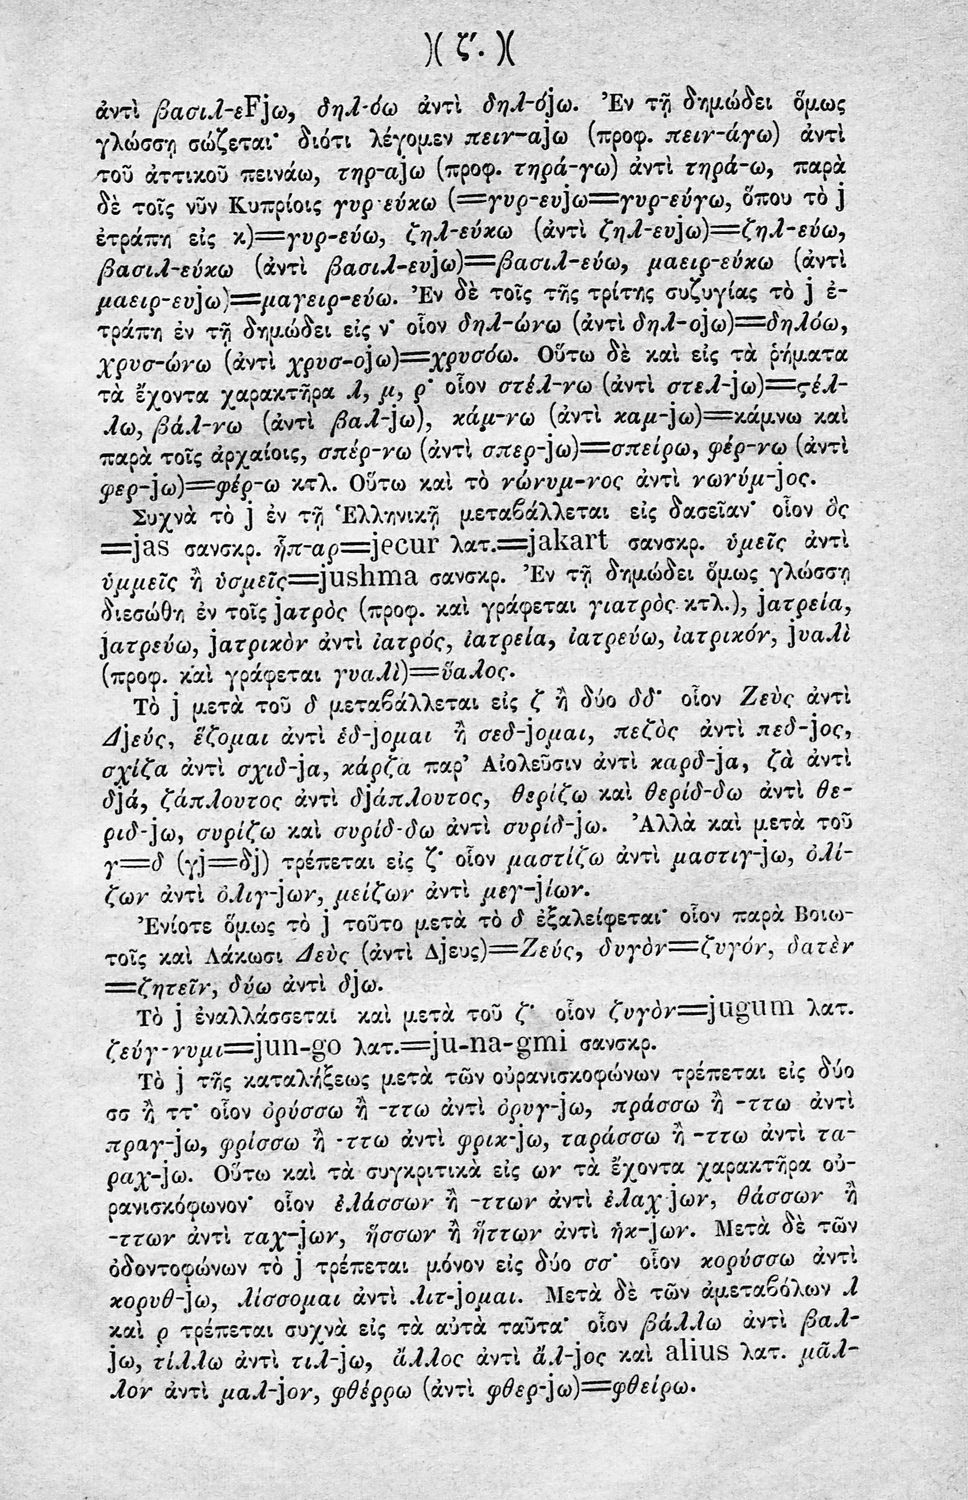 )( ζ′. )(
ἀντὶ βασιλ-εFjω, δηλ-όω ἀντὶ δηλ-όjω. Ἐν τῇ δημώδει ὅμως
γλώσσῃ σώζεται· διότι λέγομεν πειν-αjω (προφ. πειν-άγω) ἀντὶ
τοῦ ἀττικοῦ πεινάω, τηρ-αjω (προφ. τηρά-γω) ἀντὶ τηρά-ω, παρὰ
δὲ τοῖς νῦν Κυπρίοις γυρ-εύκω (=γυρ-ευjω=γυρ-εύγω, ὅπου τὸ j
ἐτράπη εἰς κ)=γυρ-εύω, ζηλ-εύκω (ἀντὶ ζηλ-ευjω)=ζηλ-εύω,
βασιλ-εύκω (ἀντὶ βασιλ-ευjω)=βασιλ-εύω, μαειρ-εύκω (ἀντὶ
μαειρ-ευjω)=μαγειρ-εύω. Ἐν δὲ τοῖς τῆς τρίτης συζυγίας τὸ j ἐ-
τράπη ἐν τῇ δημώδει εἰς ν· οἷον δηλ-ώνω (ἀντὶ δηλ-οjω)=δηλόω,
χρυσ-ώνω (ἀντὶ χρυσ-οjω)=χρυσόω. Οὕτω δὲ καὶ εἰς τὰ ῥήματα
τὰ ἔχοντα χαρακτῆρα λ, μ, ρ· οἷον στέλ-νω (ἀντὶ στελ-jω)=ϛέλ-
λω, βάλ-νω (ἀντὶ βαλ-jω), κάμ-νω (ἀντὶ καμ-jω)=κάμνω καὶ
παρὰ τοῖς ἀρχαίοις, σπέρ-νω (ἀντὶ σπερ-jω)=σπείρω, φέρ-νω (ἀντὶ
φερ-jω)=φέρ-ω κτλ. Οὕτω καὶ τὸ νώνυμ-νος ἀντὶ νωνύμ-jος.
Συχνὰ τὸ j ἐν τῇ Ἑλληνικῇ μεταβάλλεται εἰς δασεῖαν· οἷον ὃς
=jas σανσκρ. ἧπ-αρ=jecur λατ.=jakart σανσκρ. ὑμεῖς ἀντὶ
ὑμμεῖς ἢ ὑσμεῖς=jushma σανσκρ. Ἐν τῇ δημώδει ὅμως γλώσσῃ
διεσώθη ἐν τοῖς jατρὸς (προφ. καὶ γράφεται γιατρὸς κτλ.), jατρεία,
jατρεύω, jατρικὸν ἀντὶ ἰατρός, ἰατρεία, ἰατρεύω, ἰατρικόν, jυαλὶ
(προφ. καὶ γράφεται γυαλὶ)=ὕαλος.
Τὸ j μετὰ τοῦ δ μεταβάλλεται εἰς ζ ἢ δύο δδ· οἷον Ζεὺς ἀντὶ
Δjεύς, ἕζομαι ἀντὶ ἑδ-jομαι ἢ σεδ-jομαι, πεζὸς ἀντὶ πεδ-jος,
σχίζα ἀντὶ σχιδ-jα, κάρζα παρ’ Αἰολεῦσιν ἀντὶ καρδ-jα, ζὰ ἀντὶ
δjά, ζάπλουτος ἀντὶ δjάπλουτος, θερίζω καὶ θερίδ-δω ἀντὶ θε-
ριδ-jω, συρίζω καὶ συρίδ-δω ἀντὶ συρίδ-jω. Ἀλλὰ καὶ μετὰ τοῦ
γ=δ (γj=δj) τρέπεται εἰς ζ· οἷον μαστίζω ἀντὶ μαστιγ-jω, ὀλί-
ζων ἀντὶ ὀλιγ-jων, μείζων ἀντὶ μεγ-jίων.
Ἐνίοτε ὅμως τὸ j τοῦτο μετὰ τὸ δ ἐξαλείφεται· οἷον παρὰ Βοιω-
τοῖς καὶ Λάκωσι Δεὺς (ἀντὶ Δjευς)=Ζεύς, δυγὸν=ζυγόν, δατὲν
=ζητεῖν, δύω ἀντὶ δjω.
Τὸ j ἐναλλάσσεται καὶ μετὰ τοῦ ζ· οἷον ζυγὸν=jugum λατ.
ζεύγ-νυμι=jun-go λατ.=ju-na-gmi σανσκρ.
Τὸ j τῆς καταλήξεως μετὰ τῶν οὐρανισκοφώνων τρέπεται εἰς δύο
σσ ἢ ττ· οἷον ὀρύσσω ἢ -ττω ἀντὶ ὀρυγ-jω, πράσσω ἢ -ττω ἀντὶ
πραγ-jω, φρίσσω ἢ -ττω ἀντὶ φρικ-jω, ταράσσω ἢ -ττω ἀντὶ τα-
ραχ-jω. Οὕτω καὶ τὰ συγκριτικὰ εἰς ων τὰ ἔχοντα χαρακτῆρα οὐ-
ρανισκόφωνον· οἷον ἐλάσσων ἢ -ττων ἀντὶ ἐλαχ jων, θάσσων ἢ
-ττων ἀντὶ ταχ-jων, ἥσσων ἢ ἥττων ἀντὶ ἡκ-jων. Μετὰ δὲ τῶν
ὀδοντοφώνων τὸ j τρέπεται μόνον εἰς δύο σσ· οἷον κορύσσω ἀντὶ
κορυθ-jω, λίσσομαι ἀντὶ λιτ-jομαι. Μετὰ δὲ τῶν ἀμεταβόλων λ
καὶ ρ τρέπεται συχνὰ εἰς τὰ αὐτὰ ταῦτα· οἷον βάλλω ἀντὶ βαλ-
jω, τίλλω ἀντὶ τιλ-jω, ἄλλος ἀντὶ ἄλ-jος καὶ alius λατ. μᾶλ-
λον ἀντὶ μαλ-jον, φθέρρω (ἀντὶ φθερ-jω)=φθείρω.